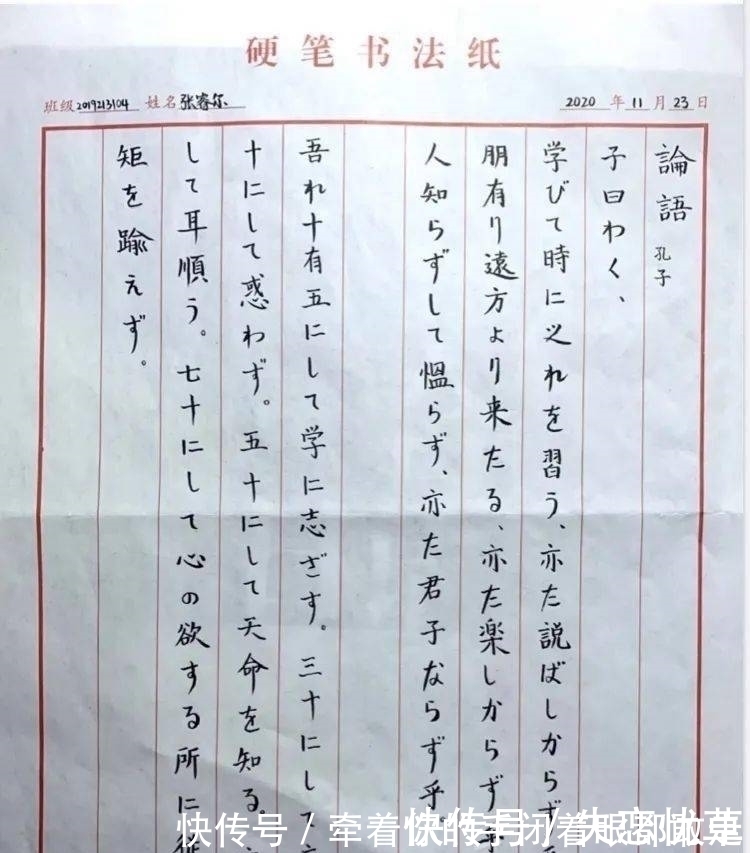 硬笔书法纸
班级 2019213104 姓名 张睿尔
2020 年 11 月 23 日
論語 孔子
子曰わく、
学びて時に之れを習う、亦た説ばしからず
朋有り遠方より来たる、亦た楽しからず乎
人知らずして慍らず、亦た君子ならず乎
吾れ十有五にして学に志ざす。三十にして
十にして惑わず。五十にして天命を知る。
して耳順う。七十にして心の欲する所に従
矩を踰えず。
快传号 / 牵着你的手闭着眼都敢走
快传号 /